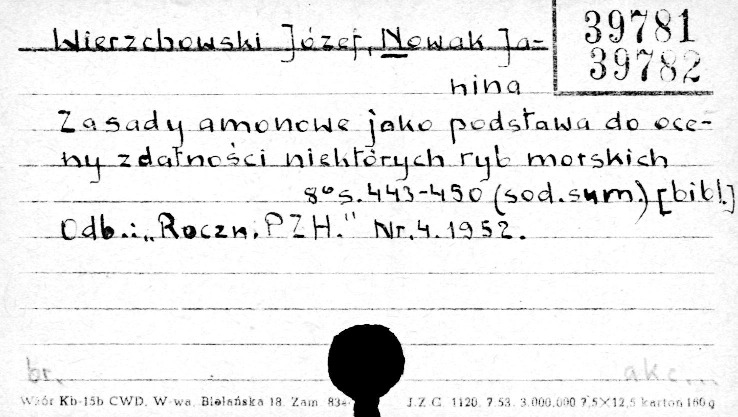 Wierzchowski Józef, Nowak Ja-
nina
39781
39782
Zasady amonowe jako podstawa do oce-
ny zdatności niektórych ryb morskich
8° s. 443-450 (sod. sum.) [bibl.]
Odb.: „Roczn. PZH." Nr. 4. 1952.
br. akc...
Wzór Kb-15b CWD, W-wa, Bielańska 18. Zam. 834 J.Z.G. 1120. 7.53. 3.000.000 7,5×12,5 karton 160 g